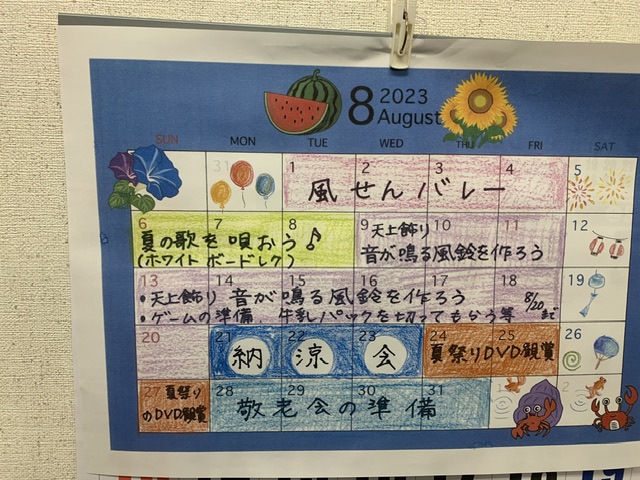 8 2023
August
SUN MON TUE WED THU FRI SAT
31 1 2 3 4 5
風せんバレー
6 7 8 9 10 11 12
夏の歌を唄おう♪
(ホワイトボードレク)
天上飾り
音が鳴る風鈴を作ろう
13 14 15 16 17 18 19
・天上飾り 音が鳴る風鈴を作ろう
・ゲームの準備、牛乳パックを切ってもらう等
8/20まで
20 21 22 23 24 25 26
納涼会
夏祭りDVD観賞
27 28 29 30 31 1 2
夏祭り
のDVD観賞
敬老会の準備